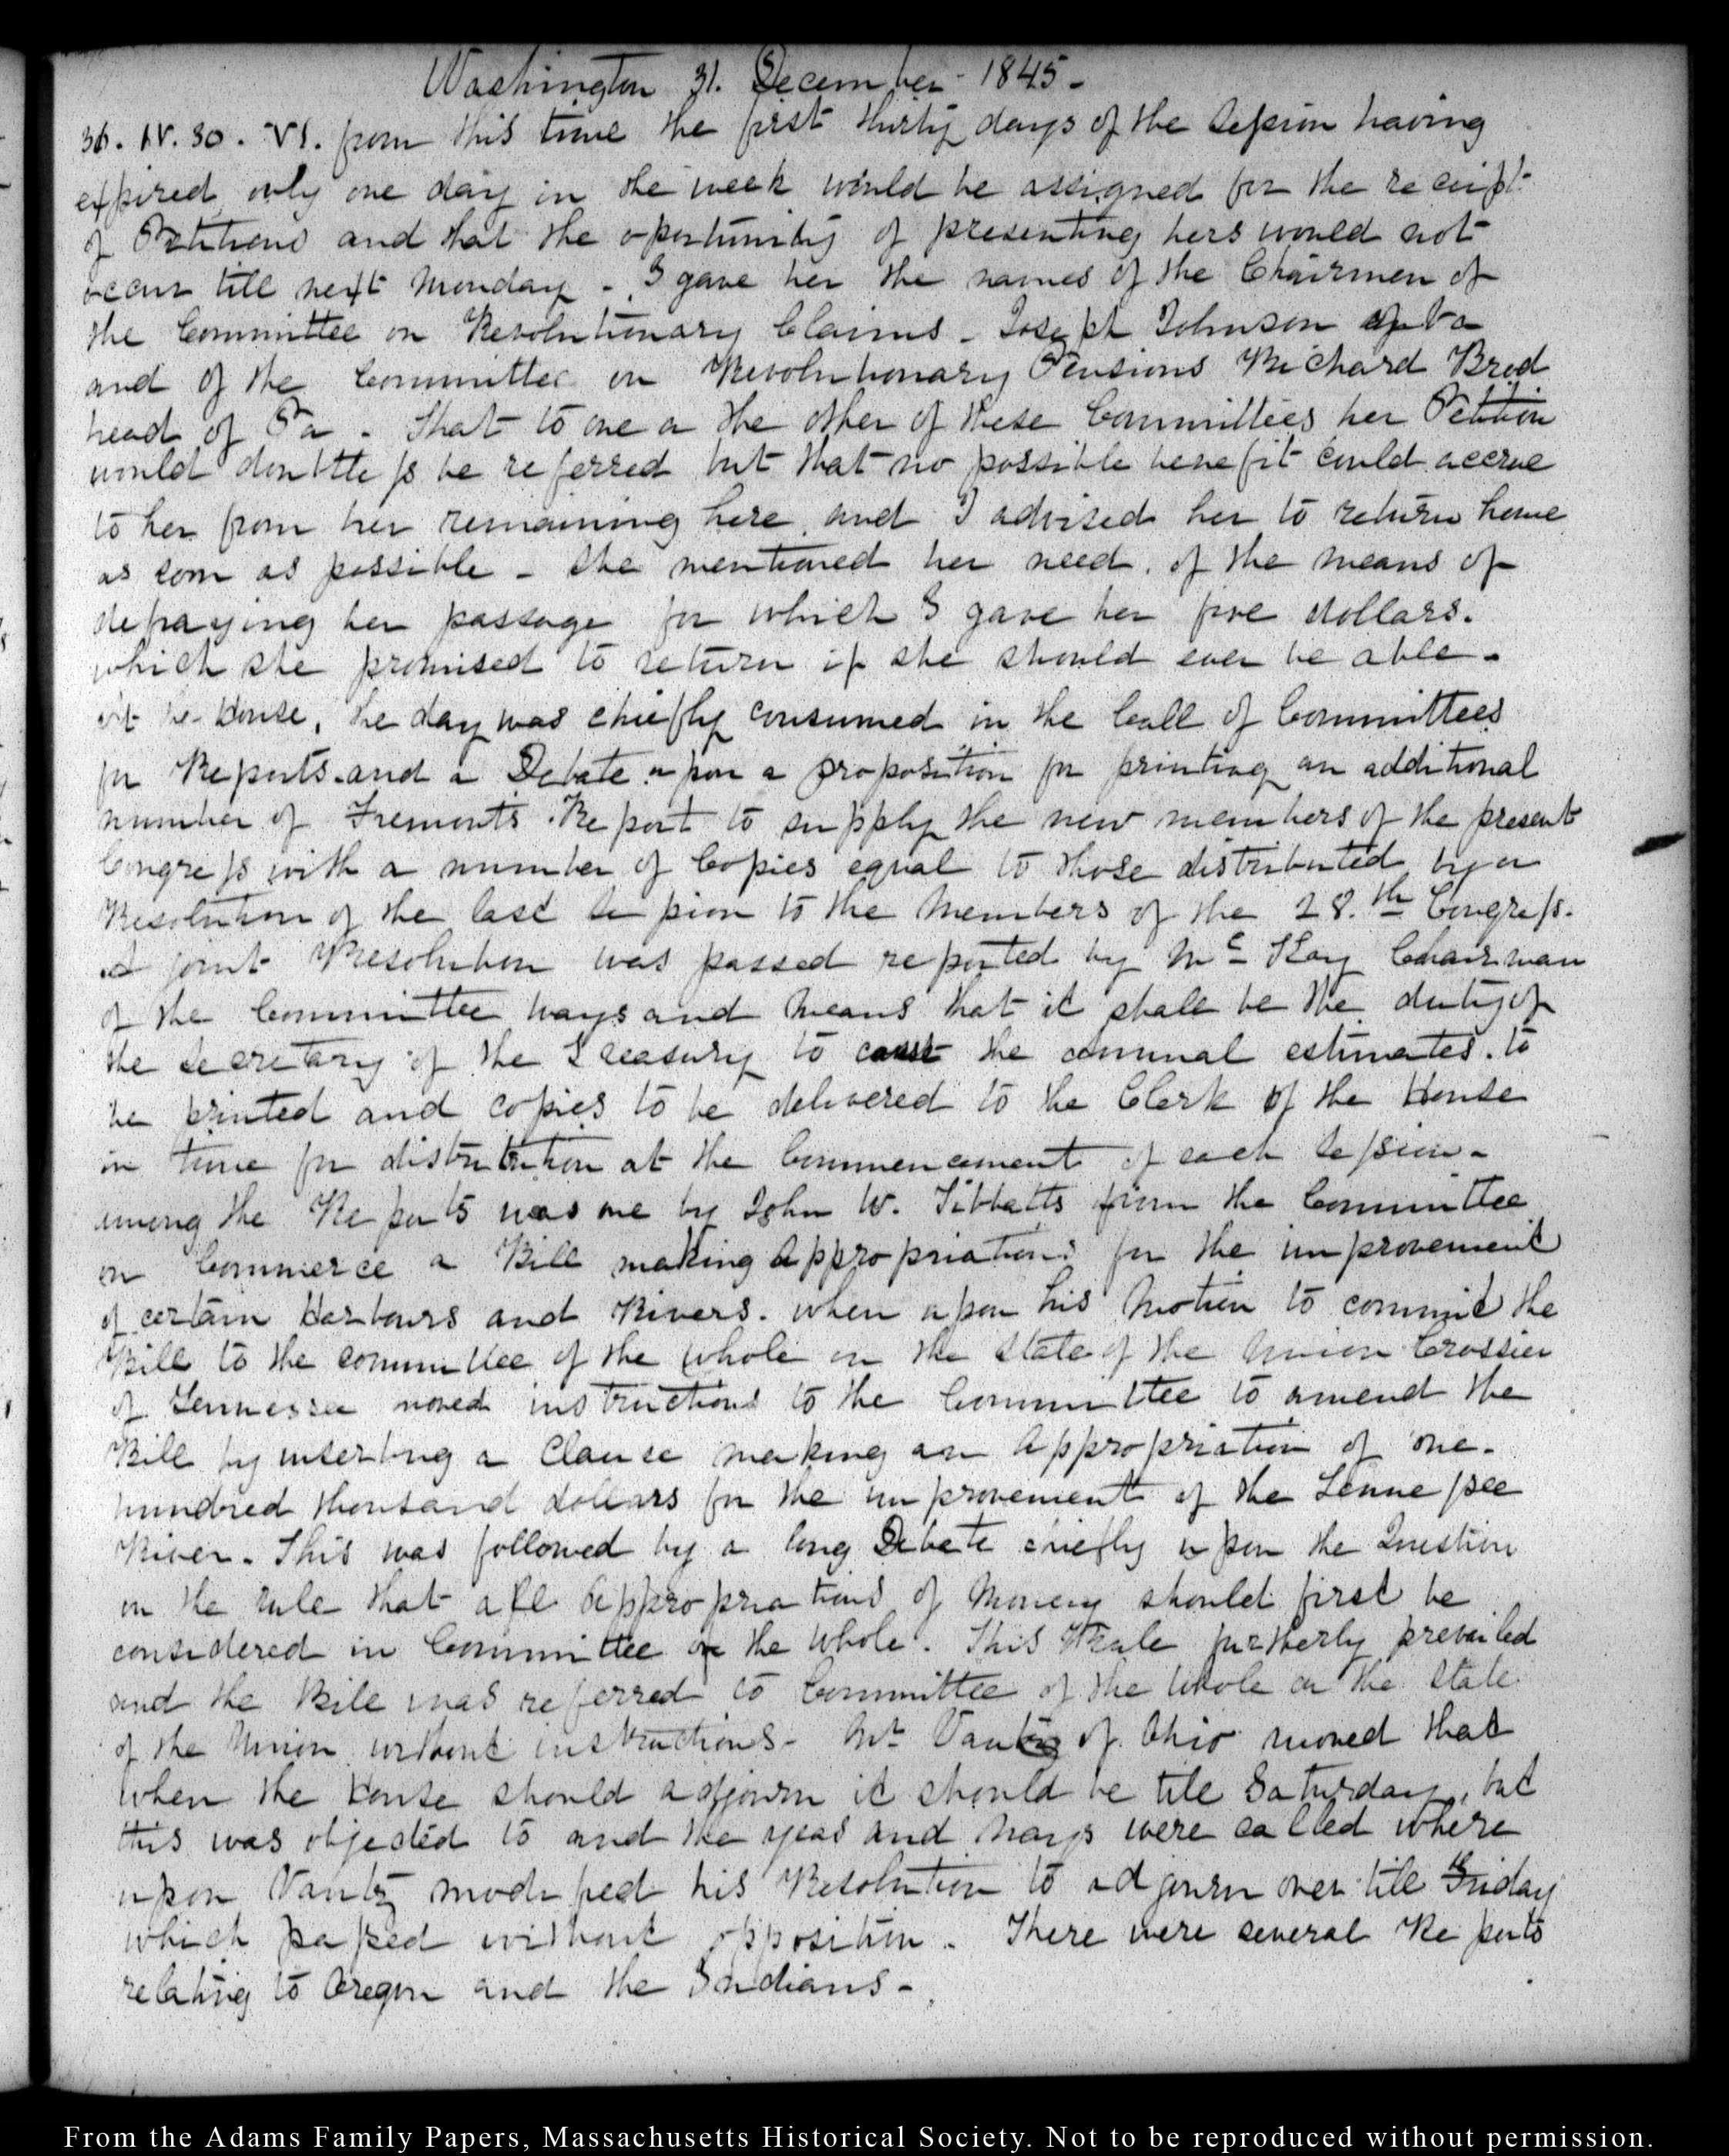 Washington 31. December 1845 -
36. IV. 30. VI. from this time the first thirty days of the Session having
expired only one day in the week would be assigned for the receipt
of Petitions and that the oportunity of presenting hers would not
occur till next Monday - I gave her the names of the Chairmen of
the Committee on Revolutionary Claims - Joseph Johnson of Va
and of the Committee on Revolutionary Pensions Richard Brod
head of Pa - That to one or the other of these Committees her Petition
would doubtless be referred but that no possible benefit could accrue
to her from her remaining here and I advised her to return home
as soon as possible - she mentioned her need of the means of
defraying her passage for which I gave her five dollars.
which she promised to return if she should ever be able -
at the House, the day was chiefly consumed in the Call of Committees
for Reports and a Debate upon a proposition for printing an additional
number of Fremonts Report to supply the new members of the present
Congress with a number of Copies equal to those distributed by a
Resolution of the last Session to the Members of the 28.th Congress.
A joint Resolution was passed reported by Mc Kay Chairman
of the Committee ways and Means that it shall be the duty of
the Secretary of the Treasury to cause the annual estimates to
be printed and copies to be delivered to the Clerk of the House
in time for distribution at the Commencement of each Session -
among the Reports was one by John W. Tibbatts from the Committee
on Commerce a Bill making Appropriations for the improvement
of certain Harbours and Rivers. when upon his Motion to commit the
Bill to the committee of the whole on the State of the Union Crossier
of Tennessee moved instructions to the Committee to amend the
Bill by inserting a Clause making an Appropriation of one
hundred thousand dollars for the improvement of the Tennessee
River. This was followed by a long Debate chiefly upon the Question
on the rule that all appropriations of Money should first be
considered in Committee of the whole. This Rule properly prevailed
and the Bill was referred to Committee of the Whole on the State
of the Union without instructions - Mr Vance of Ohio moved that
when the House should adjourn it should be till Saturday, but
this was objected to and the yeas and Nays were called where
upon Vance modified his Resolution to adjourn over till Friday
which passed without opposition. There were several Reports
relating to Oregon and the Indians -
From the Adams Family Papers, Massachusetts Historical Society. Not to be reproduced without permission.